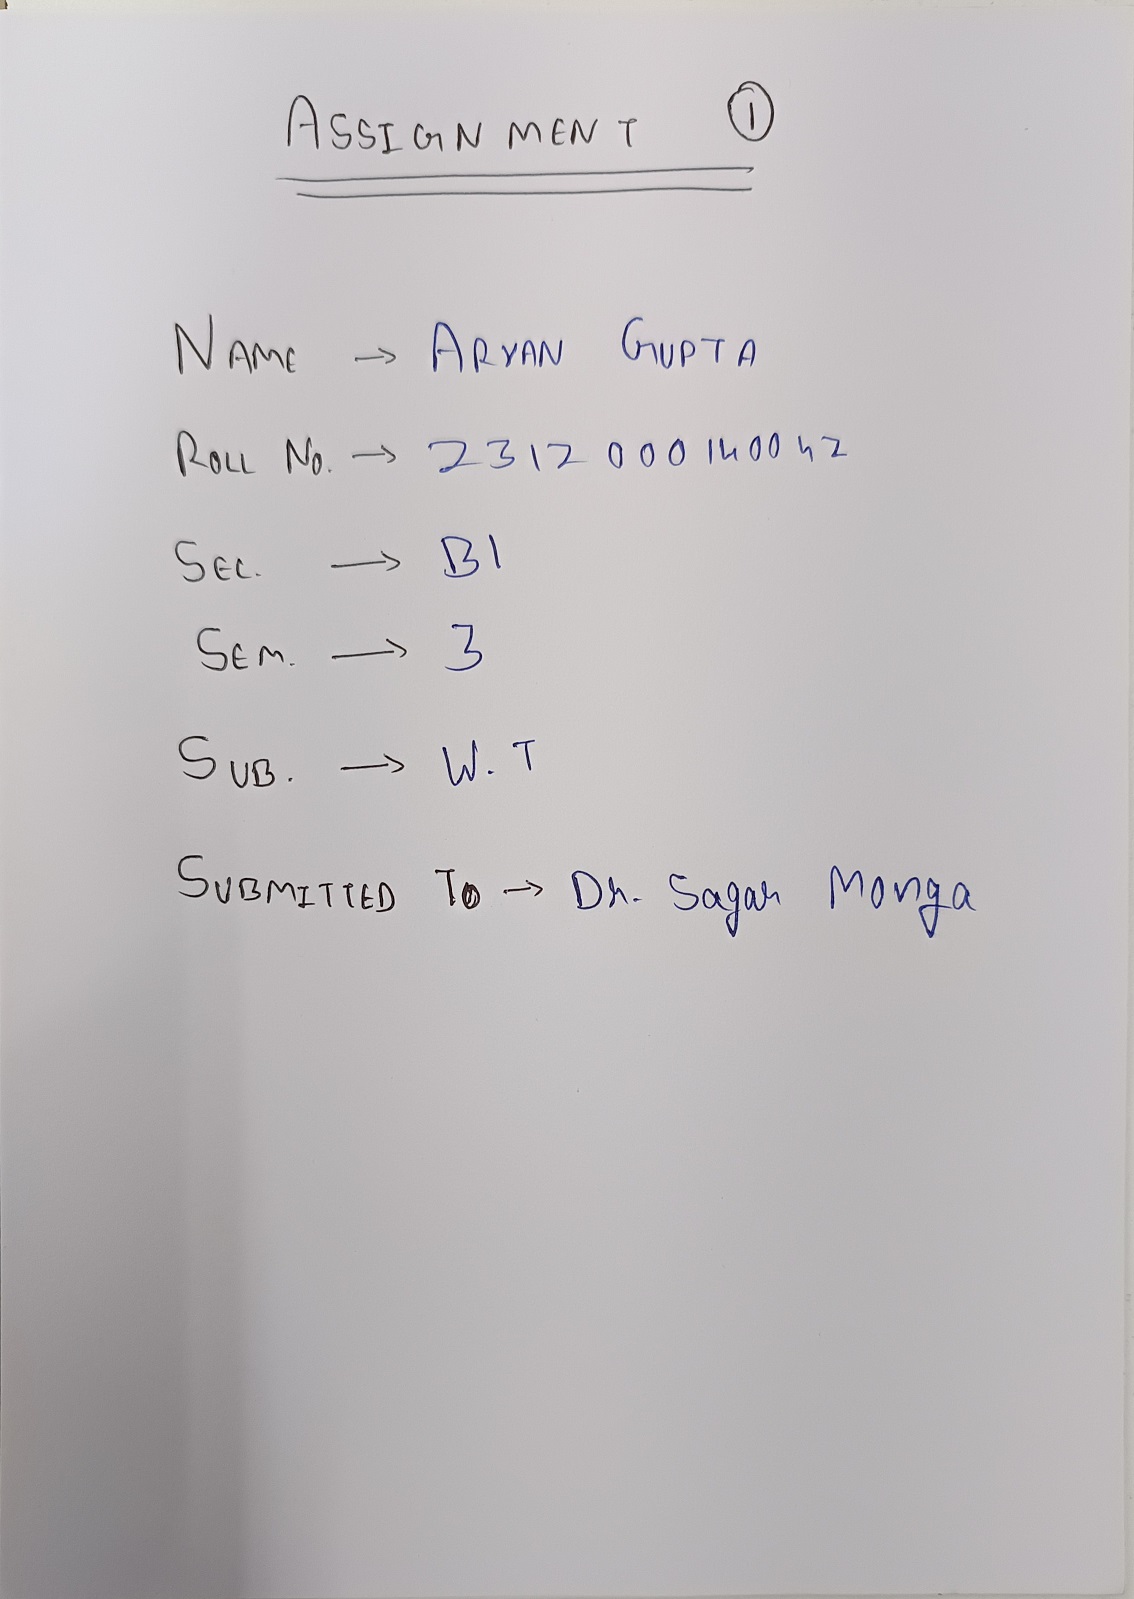 ASSIGNMENT ①
NAME → ARYAN GUPTA
ROLL NO. → 2312000140042
SEC. → B1
SEM. → 3
SUB. → W.T
SUBMITTED To → Dr. Sagar Monga